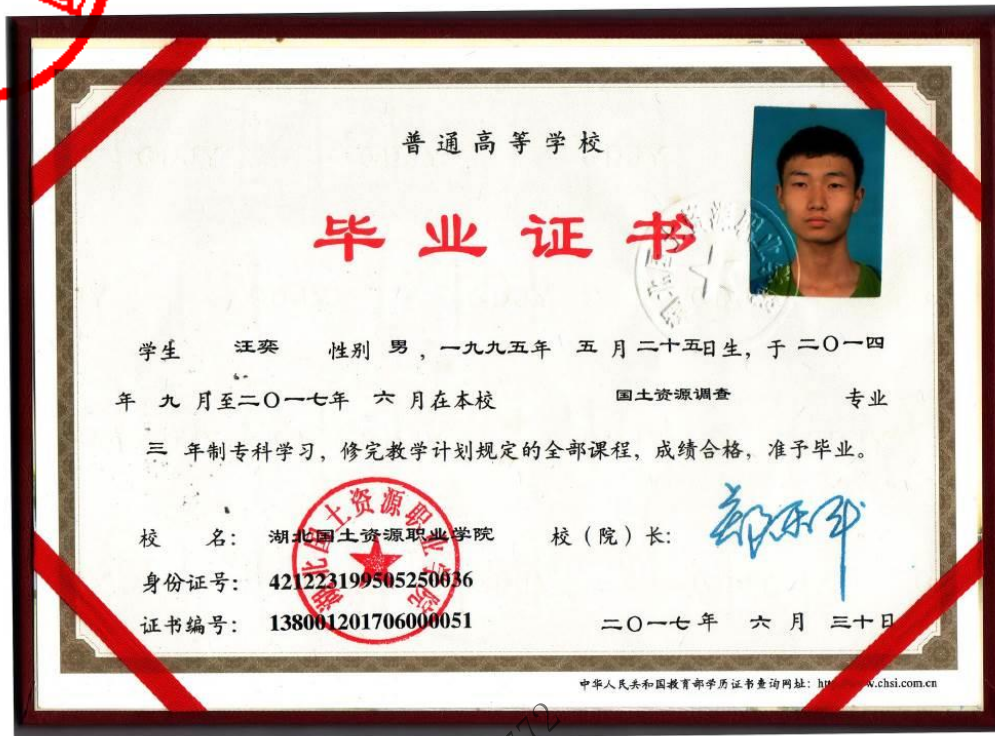 普通高等学校
毕业证书
学生 汪奕 性别 男，一九九五年 五 月二十五日生，于二〇一四
年 九 月至二〇一七年 六 月在本校 国土资源调查 专业
三 年制专科学习，修完教学计划规定的全部课程，成绩合格，准予毕业。
校 名： 湖北国土资源职业学院 校（院）长：
湖北国土资源职业学院
身份证号： 421223199505250036
证书编号： 138001201706000051 二〇一七年 六 月 三十日
中华人民共和国教育部学历证书查询网址： w.chsi.com.cn